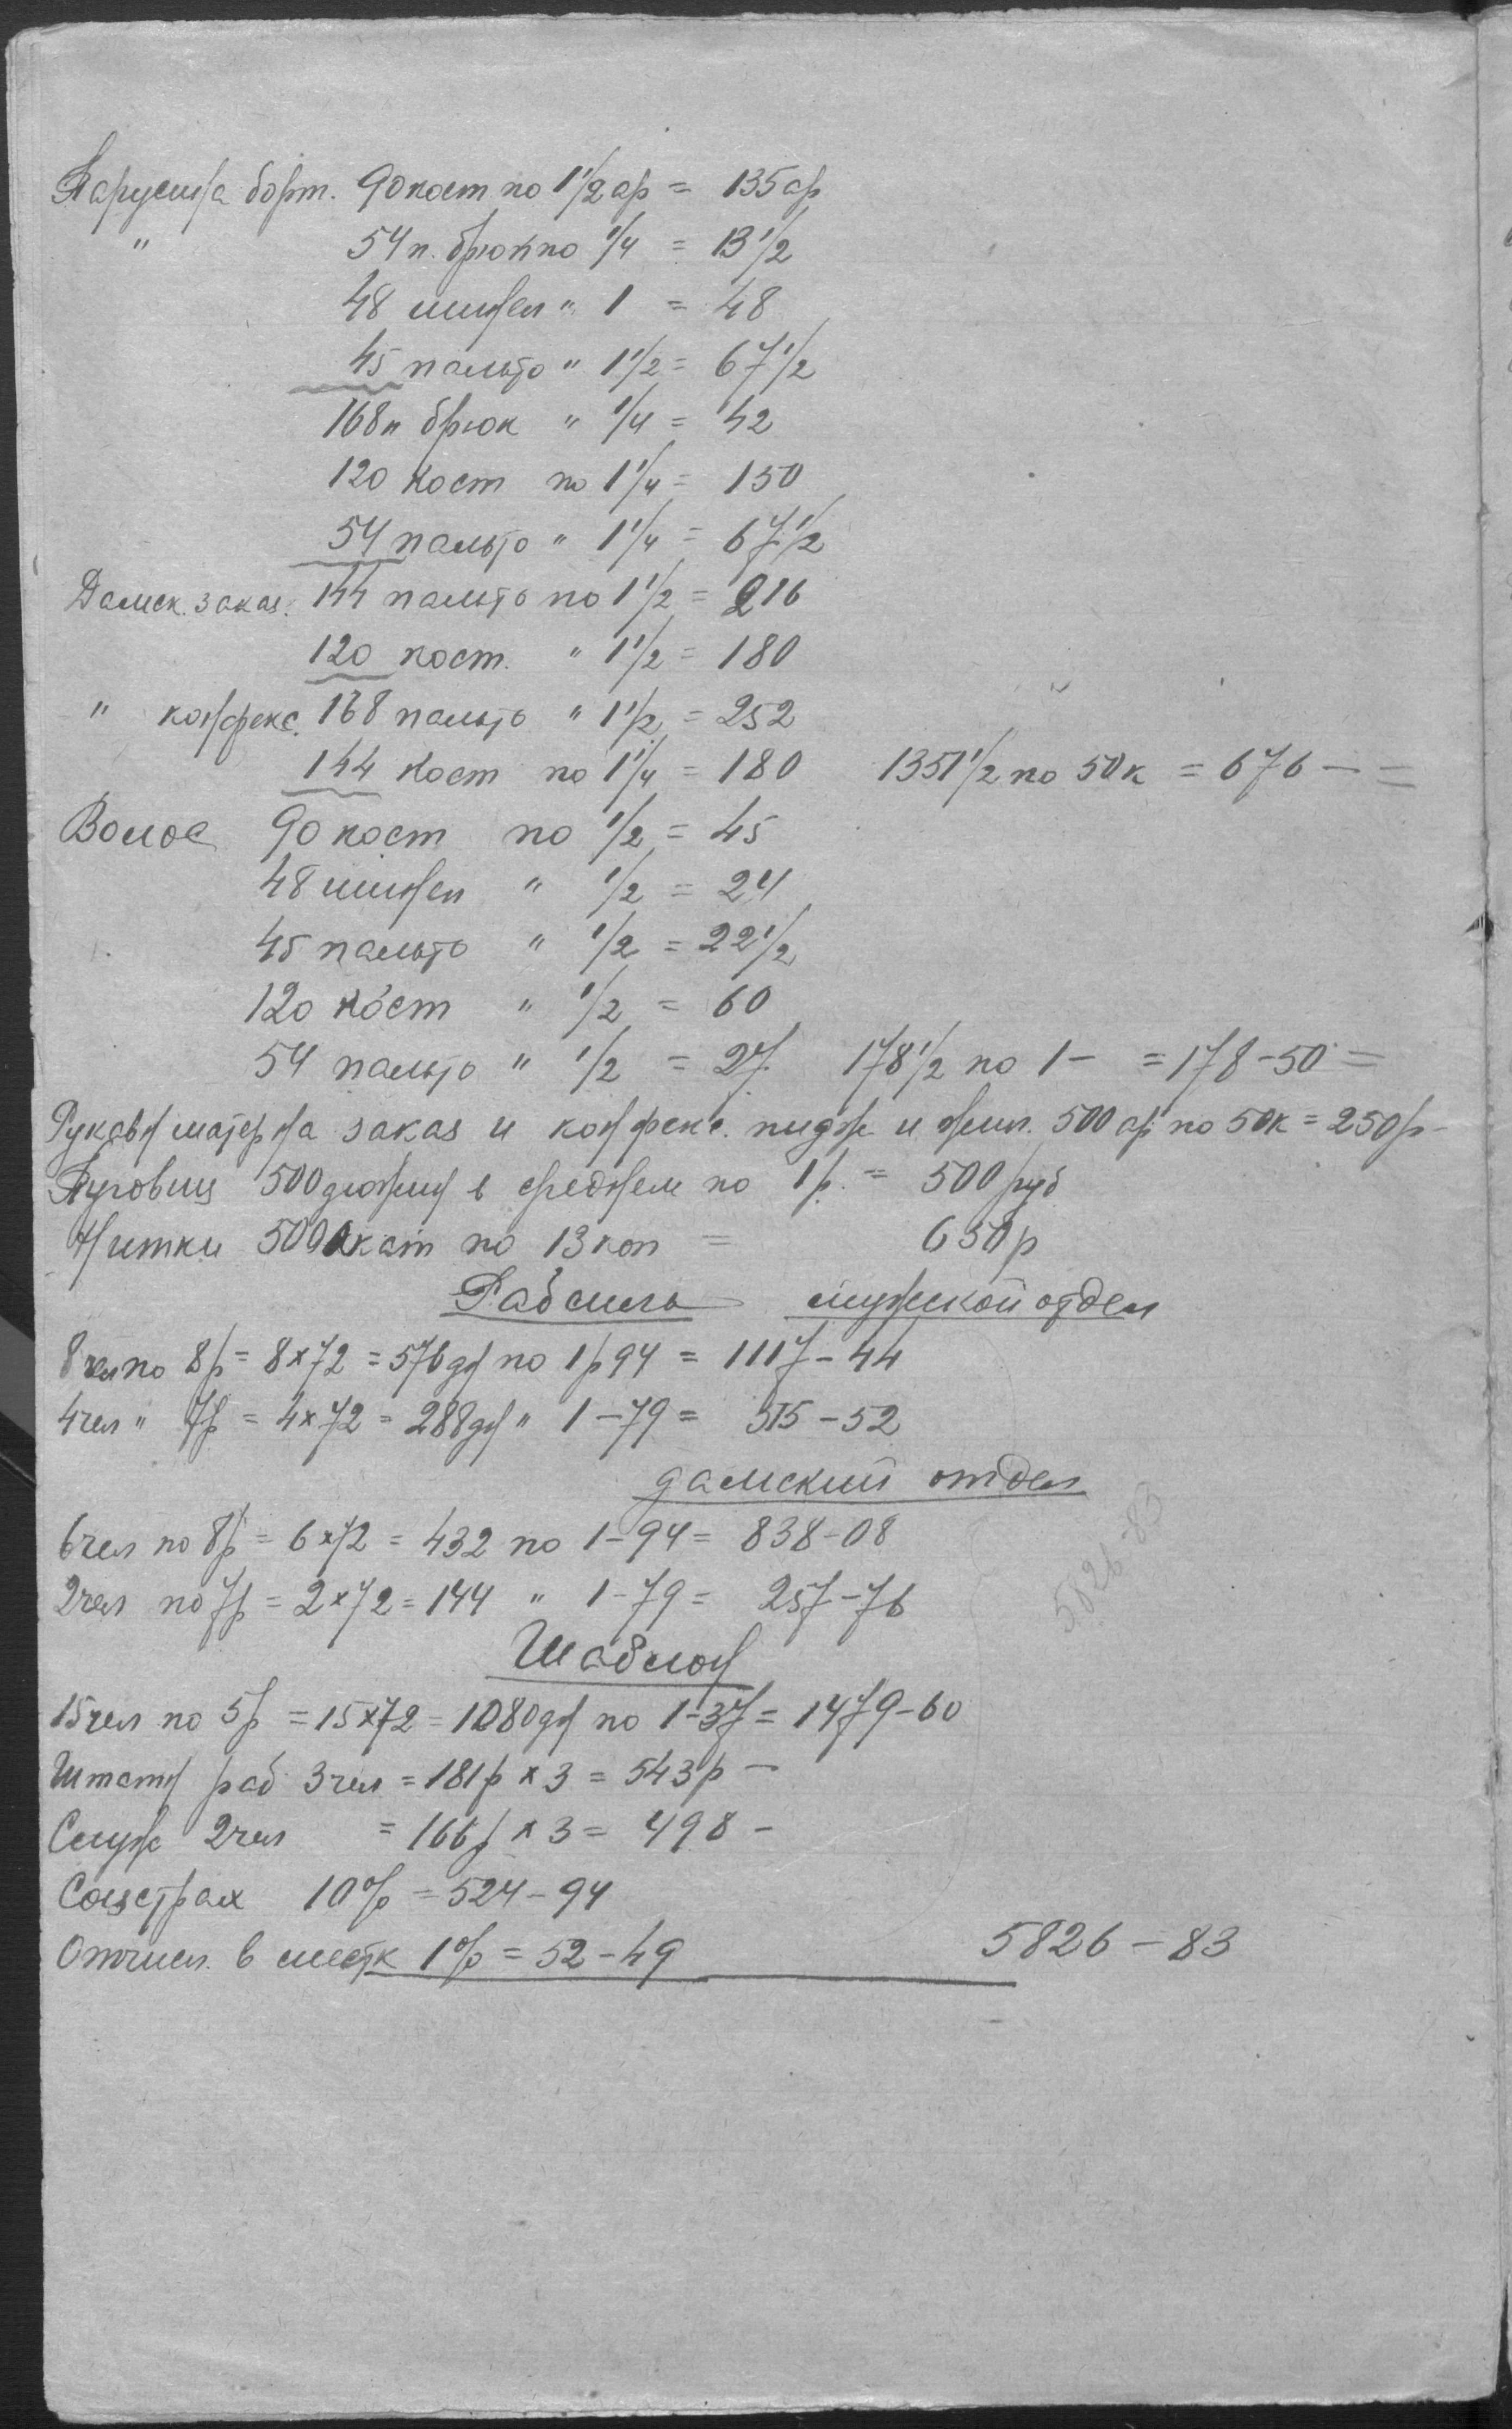 Парусина борт. 90 кост по 1 1/2 ар = 135 ар
" 54 п. брюк по 1/4 = 13 1/2
48 шинел " 1 = 48
45 пальто " 1 1/2 = 67 1/2
168 п брюк " 1/4 = 42
120 кост по 1 1/4 = 150
54 пальто " 1 1/4 = 67 1/2
Дамск. заказ. 144 пальто по 1 1/2 = 216
120 кост. " 1 1/2 = 180
" конфекс. 168 пальто " 1 1/2 = 252
144 кост по 1 1/4 = 180 1351 1/2 по 50 к = 676 — =
Волос 90 кост по 1/2 = 45
48 шинел " 1/2 = 24
45 пальто " 1/2 = 22 1/2
120 кост " 1/2 = 60
54 пальто " 1/2 = 27 178 1/2 по 1 — = 178 - 50 =
Рукавн матерна заказ и конфекс. пидж и жил. 500 ар по 50 к = 250 р -
Пуговиц 500 дюжин в среднем по 1 р. = 500 руб
Нитки 5000 кат по 13 коп = 650 р
Рабсила мужской отдел
8 чел по 8 р = 8 x 72 = 576 дн по 1 р 94 = 1117 - 44
4 чел " 7 р = 4 x 72 = 288 дн " 1 - 79 = 515 - 52
дамский отдел
6 чел по 8 р = 6 x 72 = 432 по 1 - 94 = 838 - 08
2 чел по 7 р = 2 x 72 = 144 " 1 - 79 = 257 - 76
5826-83
Шаблон
15 чел по 5 р = 15 x 72 = 1080 дн по 1 - 37 = 1479 - 60
Штатн раб 3 чел = 181 р x 3 = 543 р —
Служ 2 чел = 166 р x 3 = 498 -
Соцстрах 10% = 524 - 94
Отчисл. в местк 1% = 52 - 49 5826 - 83